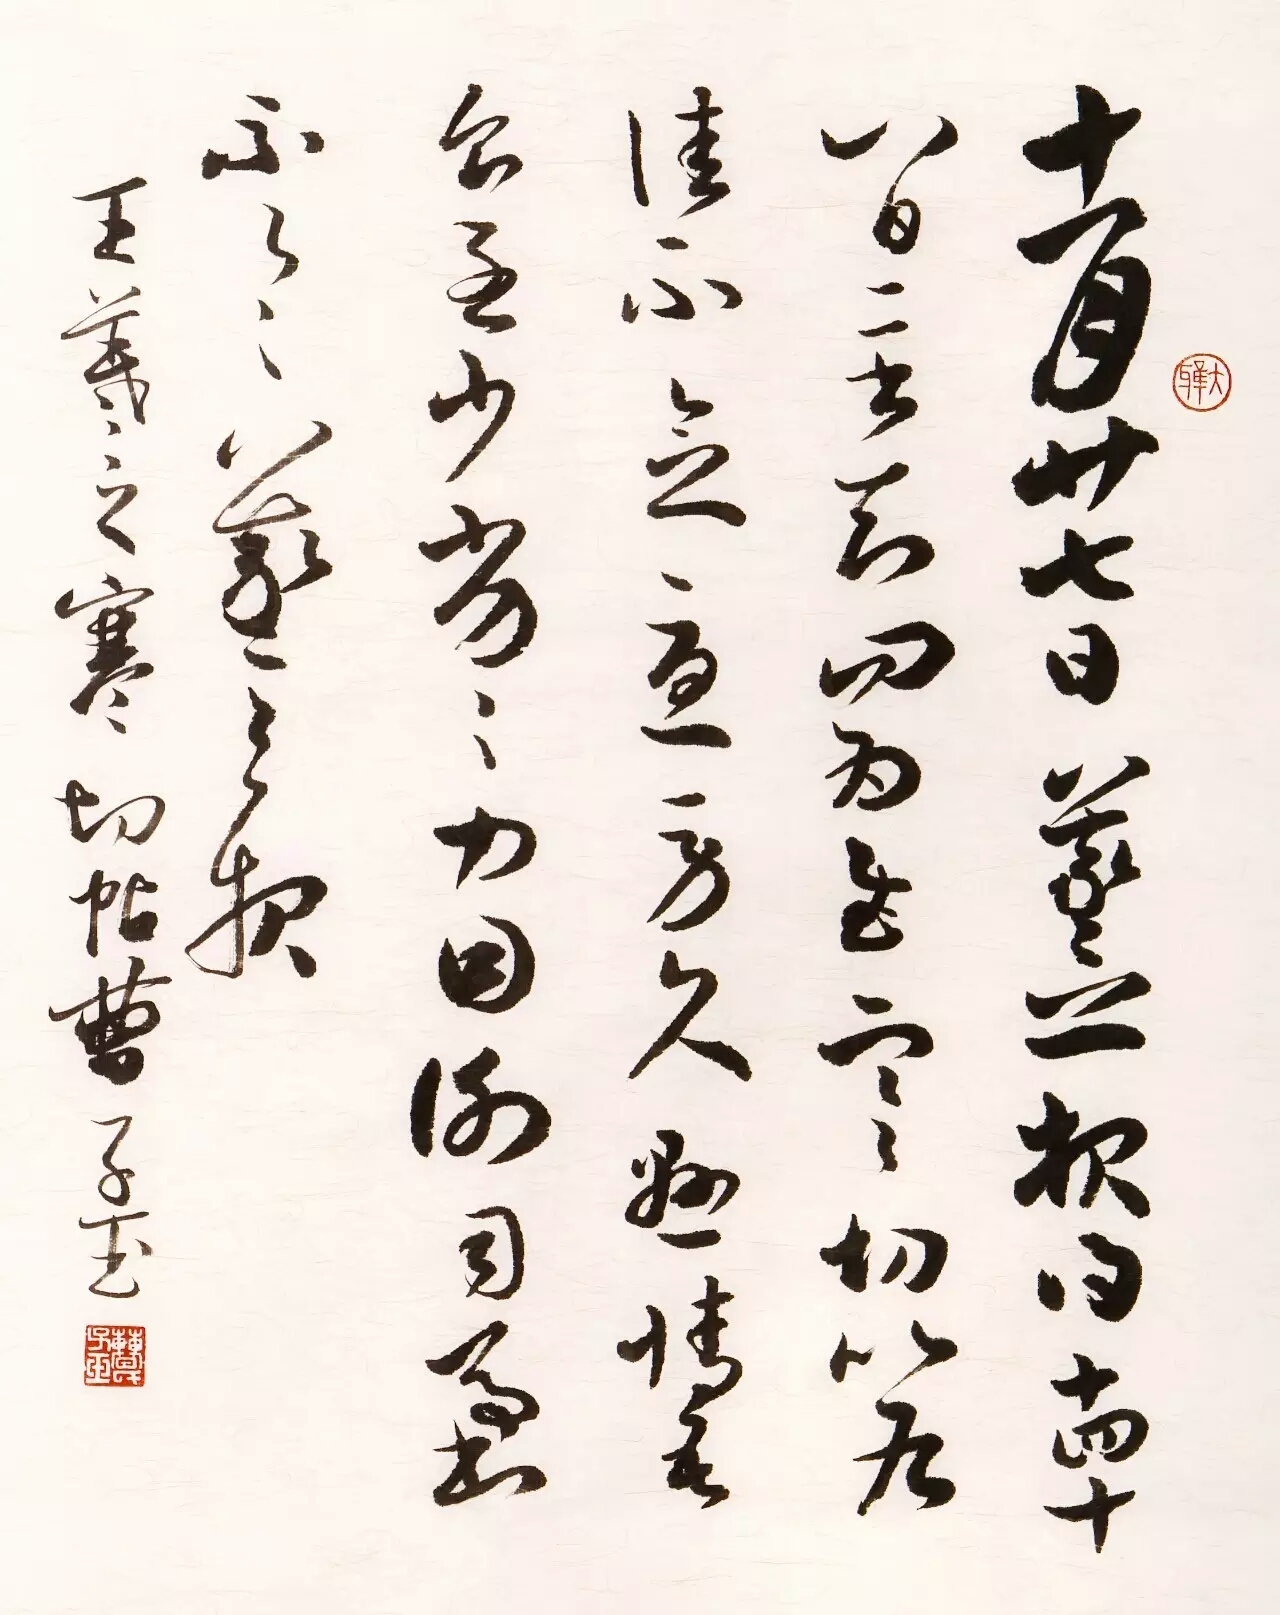 十一月廿七日羲之報得十四十
八日二書知問為慰寒切比各
佳不念憂勞久懸情吾
食至少劣劣力因謝司馬書
不一一羲之報
王羲之寒切帖曹子玉